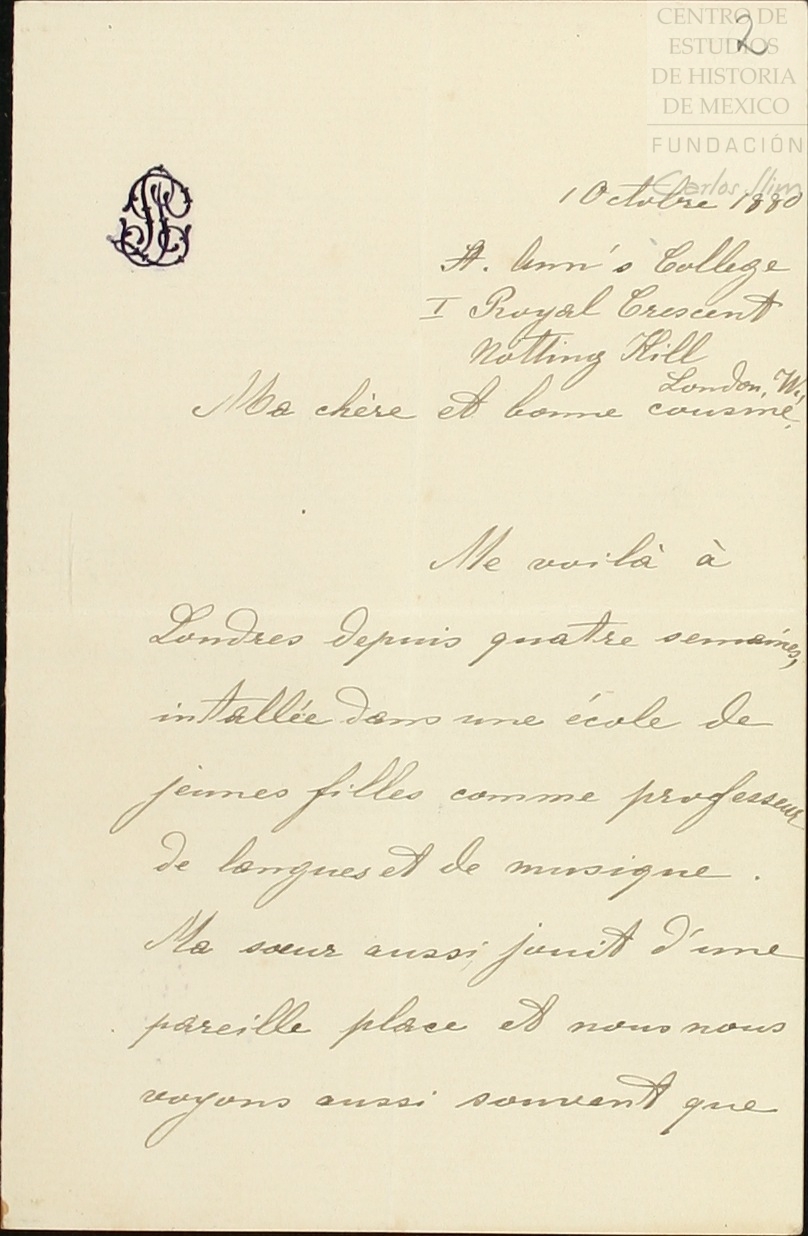 CENTRO DE
ESTUDIOS
DE HISTORIA
DE MEXICO
FUNDACIÓN
Carlos Slim
2
1 Octobre 1880
St. Ann's College
I Royal Crescent
Notting Hill
London, W.,
Ma chère et bonne cousine,
Me voilà à
Londres depuis quatre semaines,
intallée dans une école de
jeunes filles comme professeur
de langues et de musique.
Ma sœur aussi jouit d'une
pareille place et nous nous
voyons aussi souvent que